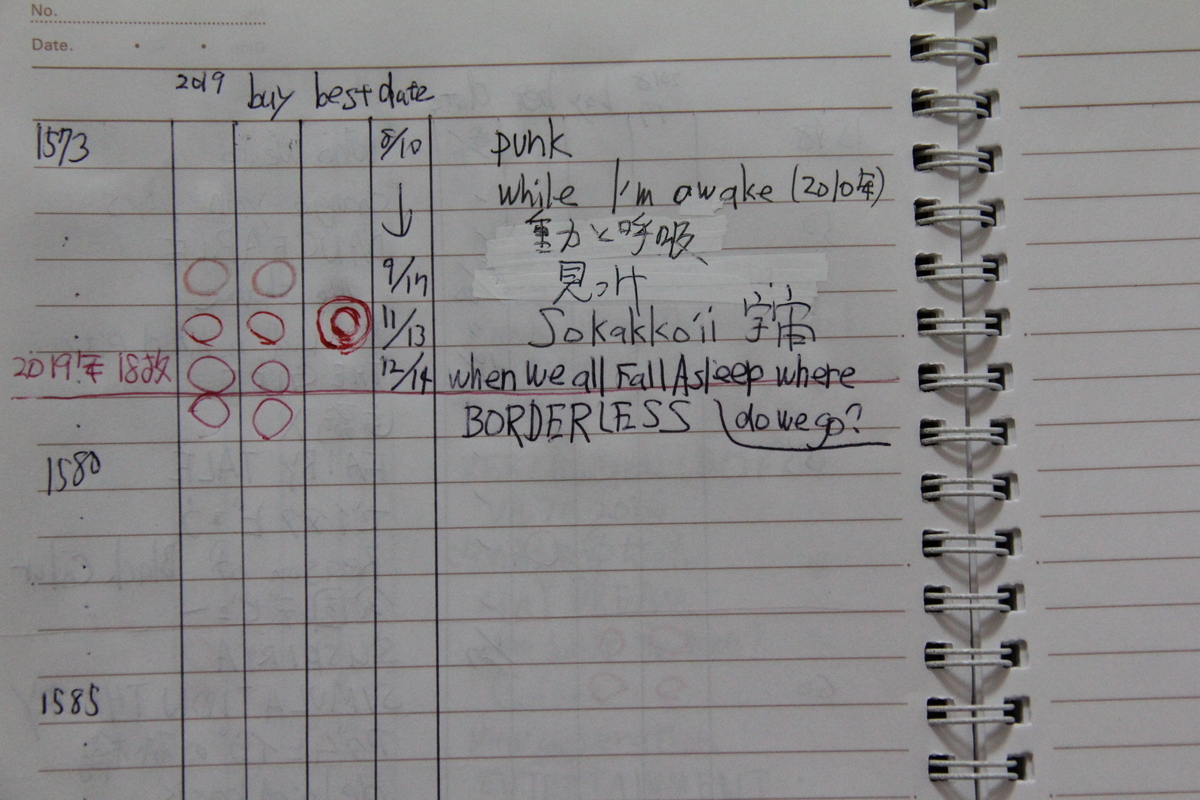 No.
Date.
2019 buy best date
1573 8/10 punk
while I'm awake (2010年)
重力と呼吸
9/17 見っけ
11/13 Sokakkoii 宇宙
2019年 18枚 12/14 when we all Fall Asleep where
do we go?
BORDERLESS
1580
1585